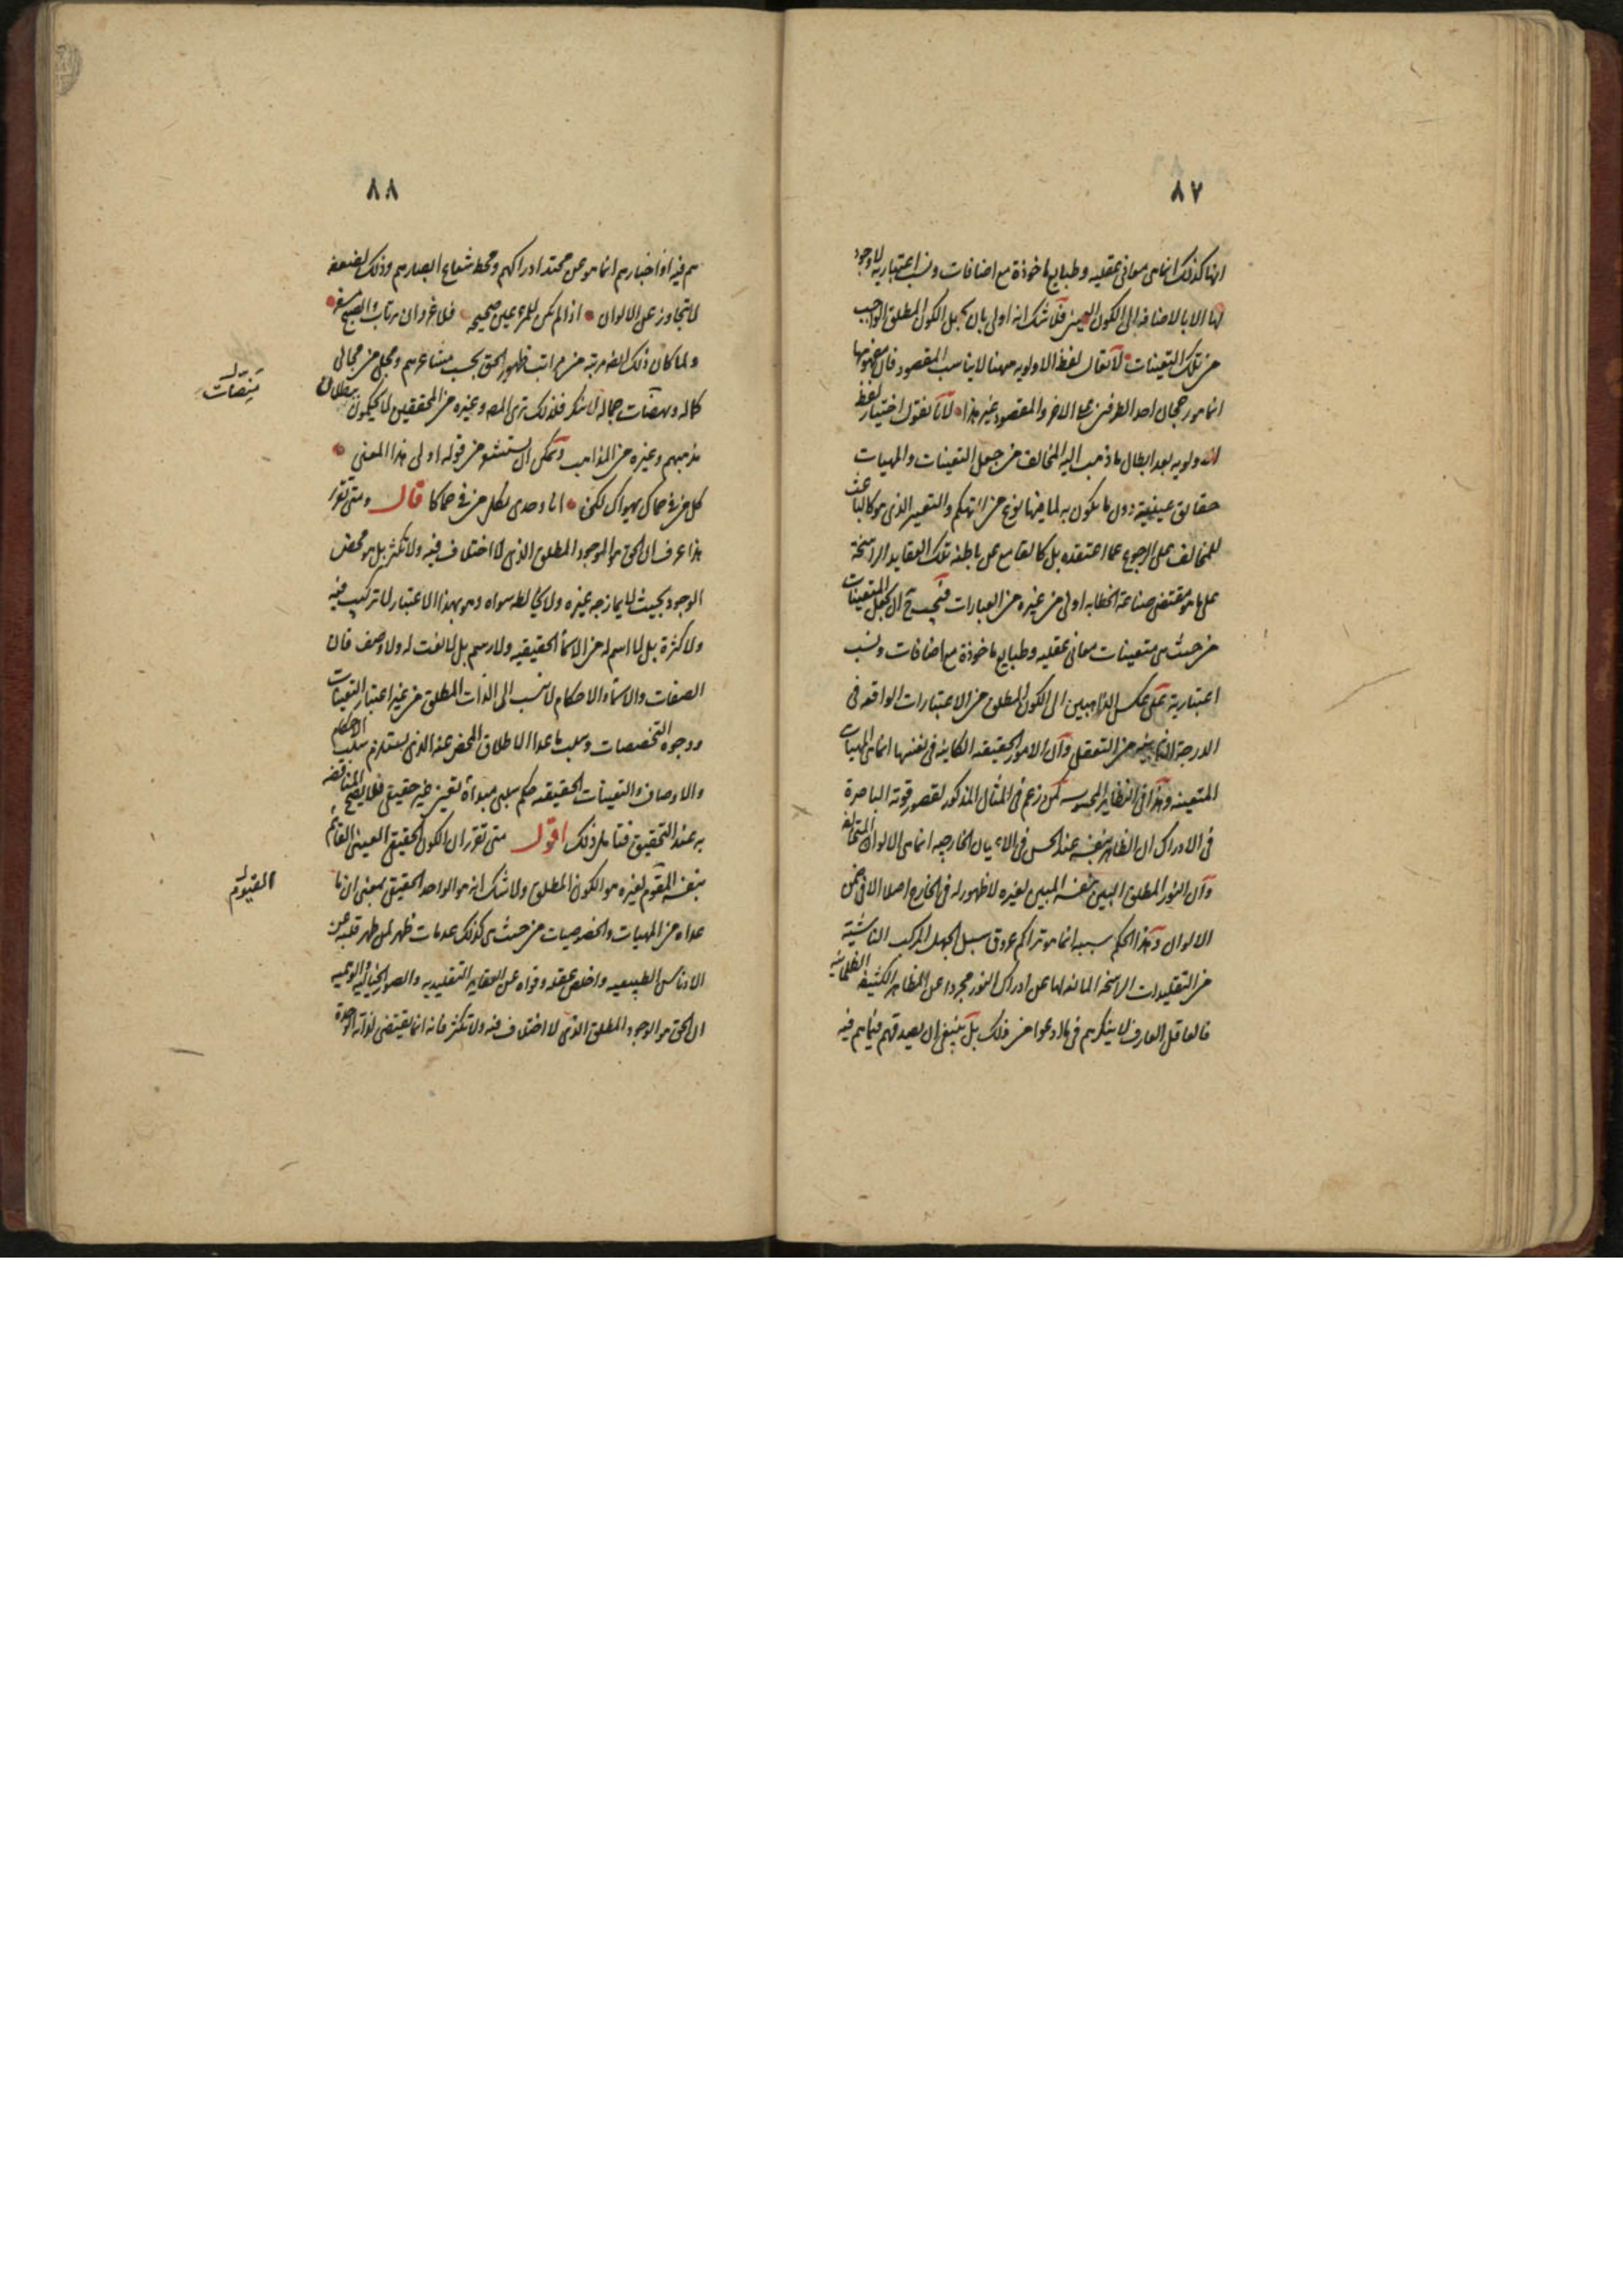 ٨٧
انها كذلك انما هى معانى عقليه وطبايع ماخوذة مع اضافات ونسب اعتباريه لا وجود
لها الا بالاضافه الى الكون المعين فلا شك انه اولى بان يجعل الكون المطلق الواجب
من تلك التعينات لا يقال لفظ الاولويه ههنا لا يناسب المقصود فان مفهومها
انما هو رجحان احد الطرفين على الاخر والمقصود غير هذا لانا نقول اختيار لفظ
الاولويه بعد ابطال ما ذهب اليه المخالف من جعل التعينات والمهيات
حقايق عينية دون ما يكون به لما فيها نوع من التهكم والتعيير الذى هو كالباعث
للمخالف على الرجوع عما اعتقده بل كالقامع عن باطنه تلك العقايد الراسخة
على ما هو مقتضى صناعة الخطابه اولى من غيره من العبارات فيجب ح ان يجعل المتعينات
من حيث هى متعينات معانى عقليه وطبايع ماخوذة مع اضافات ونسب
اعتبارية على عكس الذاهبين الى الكون المطلق من الاعتبارات الواقعه فى
الدرجة الثانيه من التعقل وان الامور الحقيقه الكاينه فى نفسها انما هى المهيات
المتعينه وهذا فى النظاير المحسوسه كمن زعم فى المثال المذكور لقصور قوته الباصرة
فى الادراك ان الظاهر بنفسه عند الحس فى الاعيان الخارجيه انما هى الالوان المتخالفة
وان النور المطلق البين بنفسه المبين لغيره لا ظهور له فى الخارج اصلا الا فى ضمن
الالوان وهذا الحكم سببه انما هو تراكم عروق سبل الجهل المركب الناشئة
من التقليدات الراسخه المانعه لها عن ادراك النور مجردا عن المظاهر الكثيفه الظلمانيه
فالعاقل العارف لا ينكرهم فى ما ادعوا من ذلك بل ينبغى ان يصدقهم فيما هم فيه
٨٨
هم فيه اذ اخبارهم انما هو عن محتد ادراكهم ومحط شعاع ابصارهم وذلك لضعفه
لا يتجاوز على الالوان اذا لم يكن للمرء عين صحيحه فلا غرو ان يرتاب والصبح مسفر
ولما كان ذلك ايضا مرتبة من مراتب ظهور الحق بحسب مشاعرهم ومجلى من مجالى
كماله ومنصات جماله لا ينكر فلذلك ترى المص وغيره من المحققين لا يحكمون ببطلان
مذهبهم وغيره من المذاهب ويمكن ان يستشعر من قوله اولى هذا المعنى
كل من فى حماك يهواك لكن انا وحدى بكل من فى حماكا قال ومتى تقرر
هذا عرف ان الحق هو الوجود المطلق الذى لا اختلاف فيه ولا تكثر بل هو محض
الوجود بحيث لا يمازجه غيره ولا يخالطه سواه وهو بهذا الاعتبار لا تركيب فيه
ولا كثرة بل لا اسم له من الاسماء الحقيقيه ولا رسم بل لا نعت له ولا وصف فان
الصفات والاسماء والاحكام لا تنسب الى الذات المطلق من غير اعتبار التعينات
ووجوه التخصصات وسلب ما عدا الاطلاق المحض عنه الذى يستلزم سلب الاحكام
والاوصاف والتعينات الحقيقه حكم سلبى مبدأه تعين غير حقيقى فلا يصح المناقضه
به عند التحقيق فتامل ذلك اقول متى تقرر ان الكون الحقيقى العينى القائم
بنفسه المقوم لغيره هو الكون المطلق ولا شك انه هو الواحد الحقيقى بمعنى ان ما
عداه من المهيات والخصوصيات من حيث هى كذلك عدمات ظهر لمن طهر قلبه عن
الادناس الطبيعيه واخلص عقله وقواه عن العقايد التقليديه والصور الخياليه الوهميه
ان الحق هو الوجود المطلق الذى لا اختلاف فيه ولا تكثر فانه انما يقتضى لذاته الوحدة
مَنِصّات
القيوم